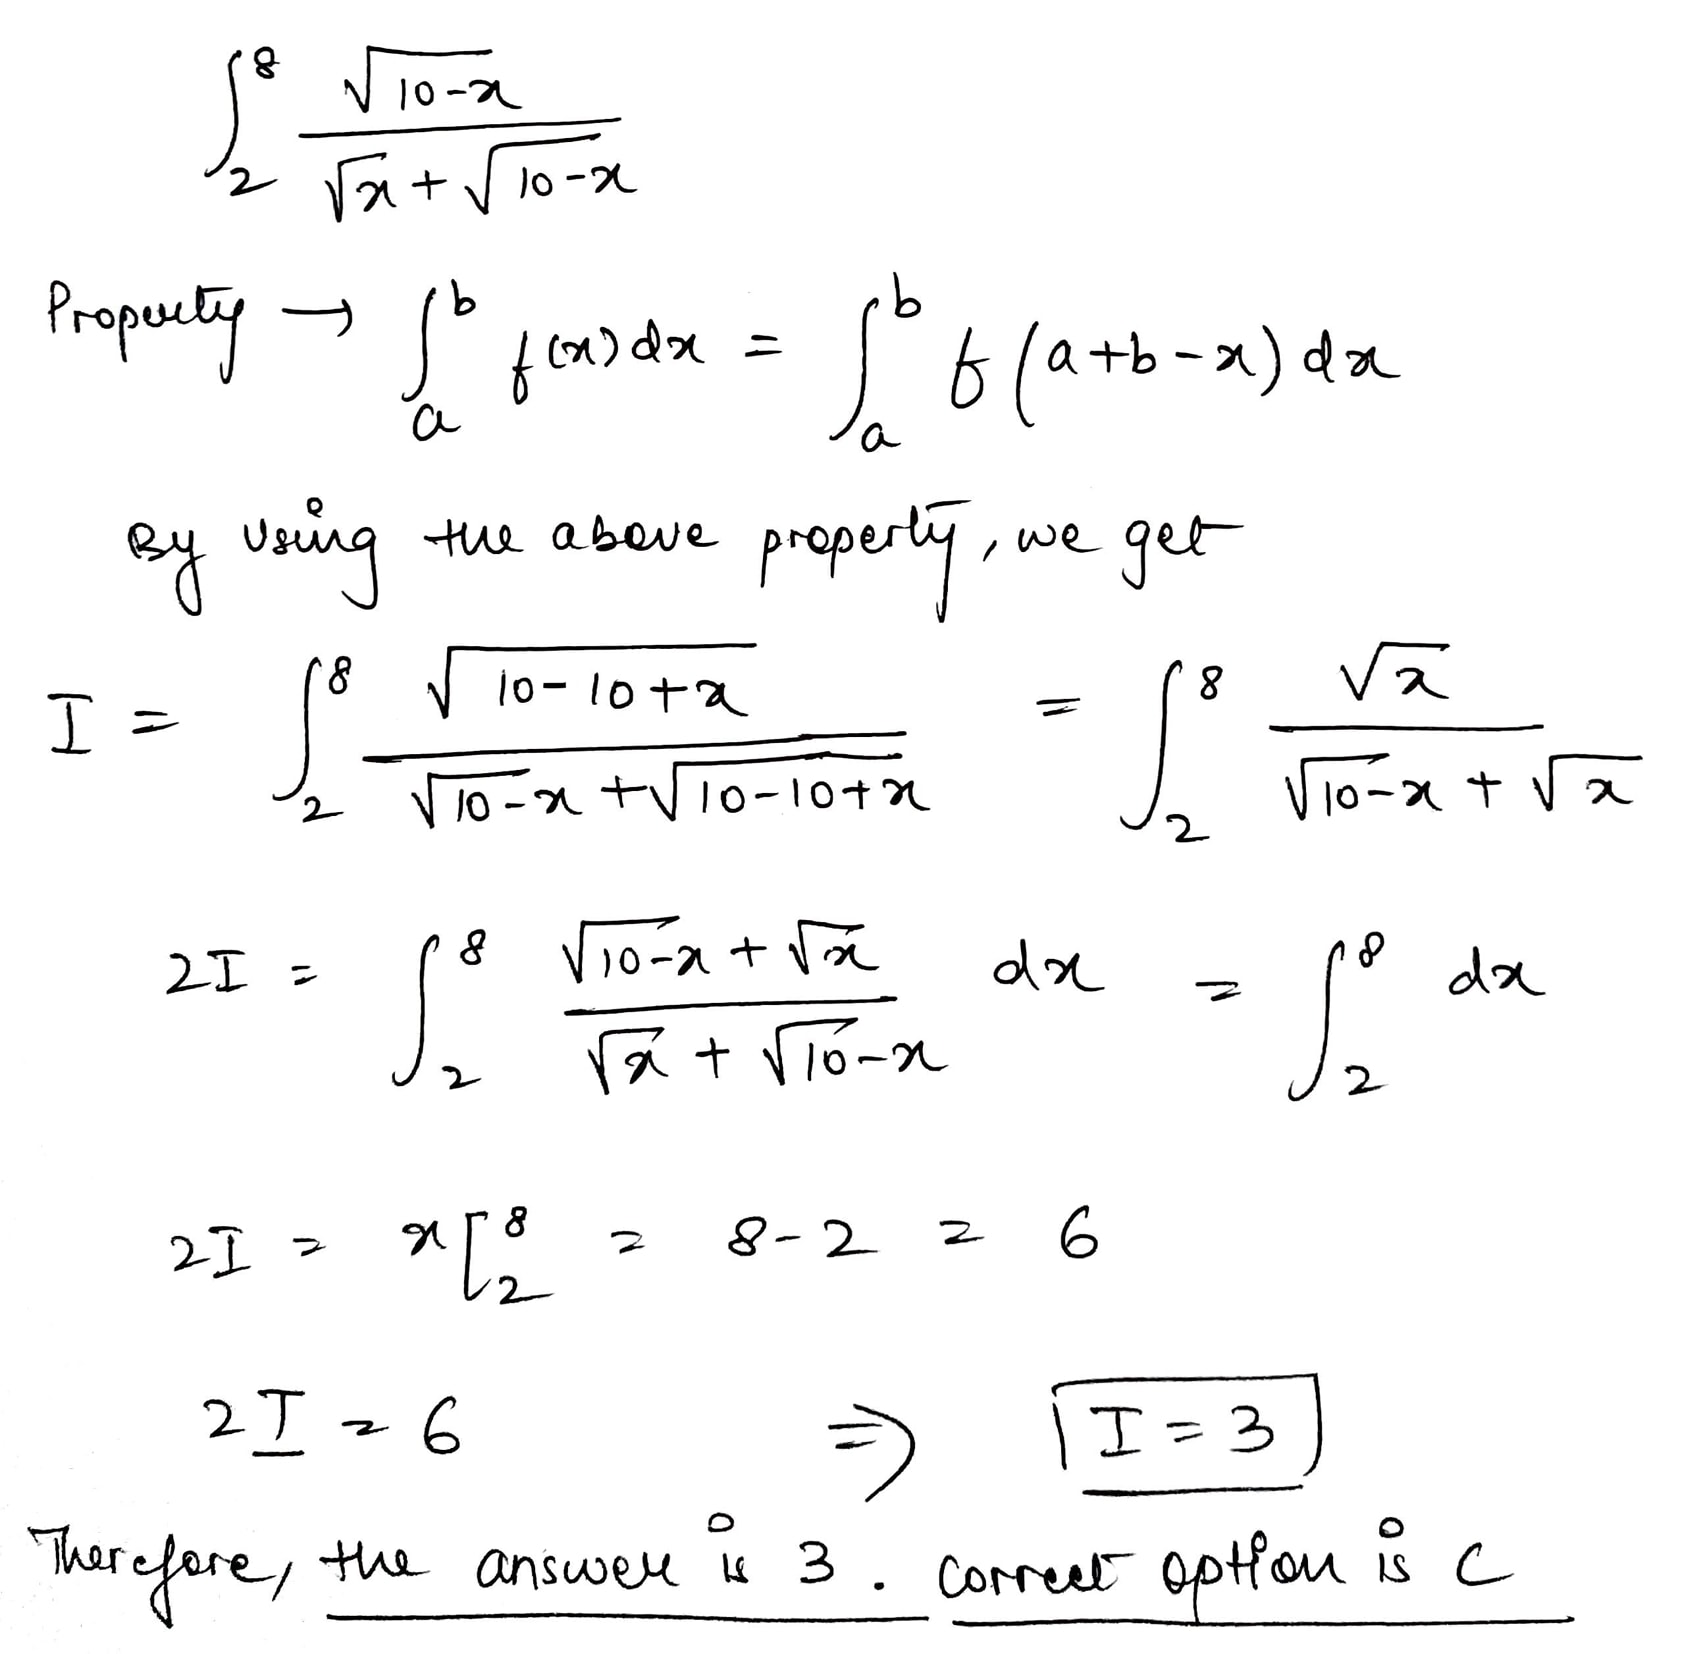 ∫₂⁸ √(10-x) / (√x + √(10-x))
Property → ∫ₐᵇ f(x) dx = ∫ₐᵇ f(a+b-x) dx
By using the above property, we get
I = ∫₂⁸ √(10-10+x) / (√(10-x) + √(10-10+x)) = ∫₂⁸ √x / (√(10-x) + √x)
2I = ∫₂⁸ (√(10-x) + √x) / (√x + √(10-x)) dx = ∫₂⁸ dx
2I = x[₂⁸ = 8-2 = 6
2I = 6 ⇒ I = 3
Therefore, the answer is 3. correct option is C